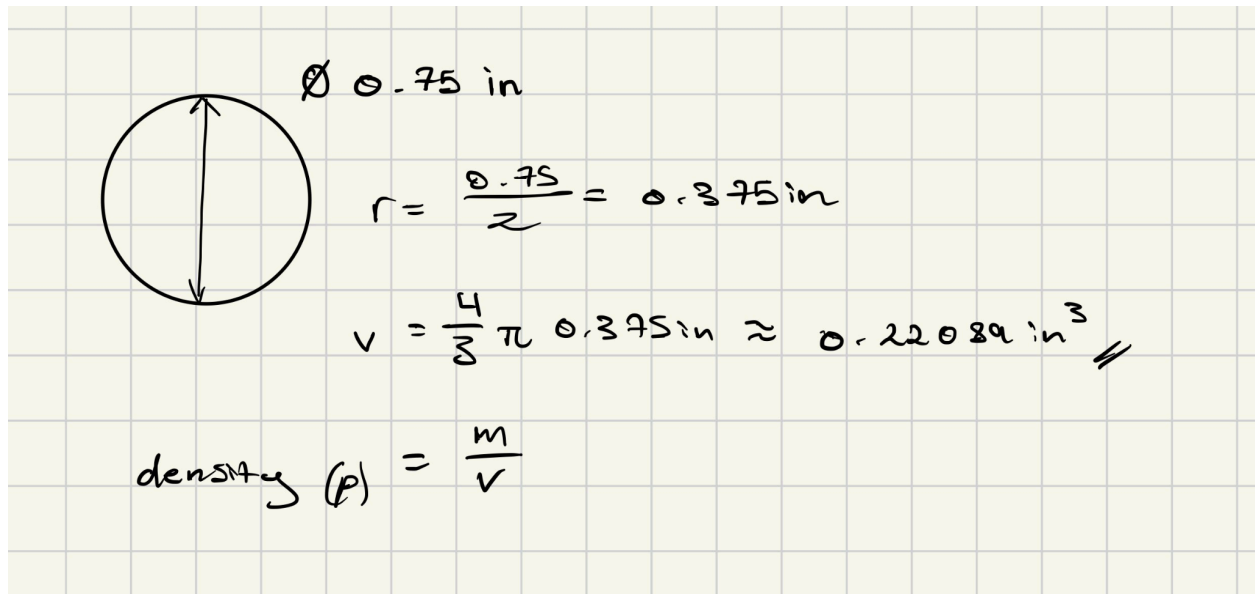 Ø 0.75 in
r = 0.75/2 = 0.375 in
v = 4/3 π 0.375 in ≈ 0.22089 in³
density (ρ) = m/v